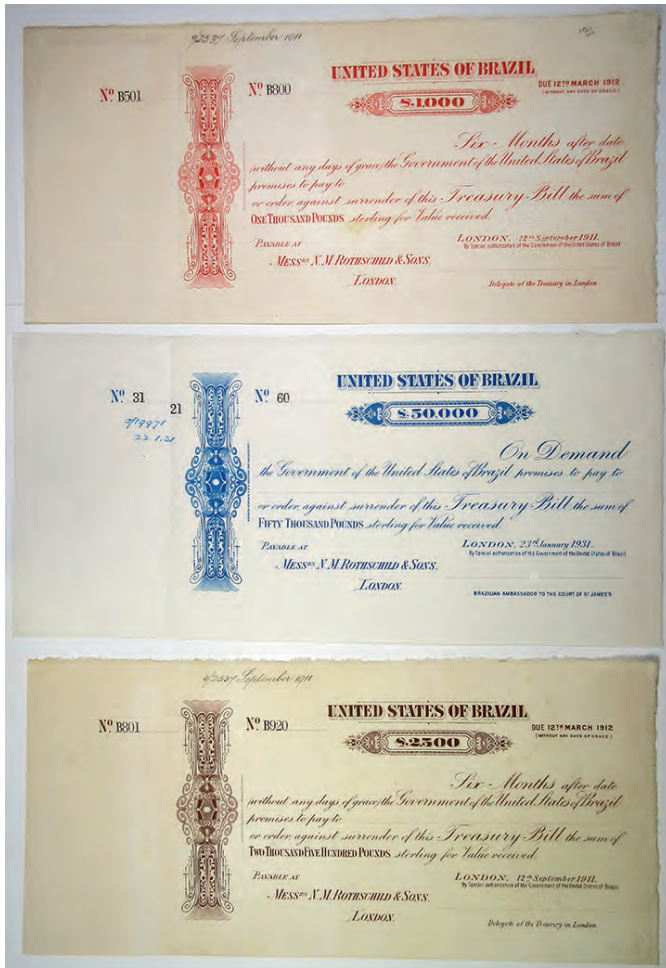 September 1911
Nº B501
Nº B800
UNITED STATES OF BRAZIL
DUE 12TH MARCH 1912
(WITHOUT ANY DAYS OF GRACE)
£1,000
Six Months after date
(without any days of grace) the Government of the United States of Brazil
promises to pay to
or order, against surrender of this Treasury Bill the sum of
ONE THOUSAND POUNDS sterling for Value received.
PAYABLE AT
LONDON, 12th September 1911.
By Special authorization of the Government of the United States of Brazil
MESSRS N. M. ROTHSCHILD & SONS,
LONDON.
Delegate of the Treasury in London
Nº 31
21
Nº 60
22.1.31
UNITED STATES OF BRAZIL
£50,000
On Demand
the Government of the United States of Brazil promises to pay to
or order, against surrender of this Treasury Bill the sum of
FIFTY THOUSAND POUNDS sterling for Value received.
PAYABLE AT
LONDON, 23rd January 1931.
By Special authorization of the Government of the United States of Brazil
MESSRS N. M. ROTHSCHILD & SONS,
LONDON.
BRAZILIAN AMBASSADOR TO THE COURT OF ST JAMES'S
September 1911
Nº B801
Nº B920
UNITED STATES OF BRAZIL
DUE 12TH MARCH 1912
(WITHOUT ANY DAYS OF GRACE)
£2,500
Six Months after date
(without any days of grace) the Government of the United States of Brazil
promises to pay to
or order, against surrender of this Treasury Bill the sum of
TWO THOUSAND FIVE HUNDRED POUNDS sterling for Value received.
PAYABLE AT
LONDON, 12th September 1911.
By Special authorization of the Government of the United States of Brazil
MESSRS N. M. ROTHSCHILD & SONS,
LONDON.
Delegate of the Treasury in London.